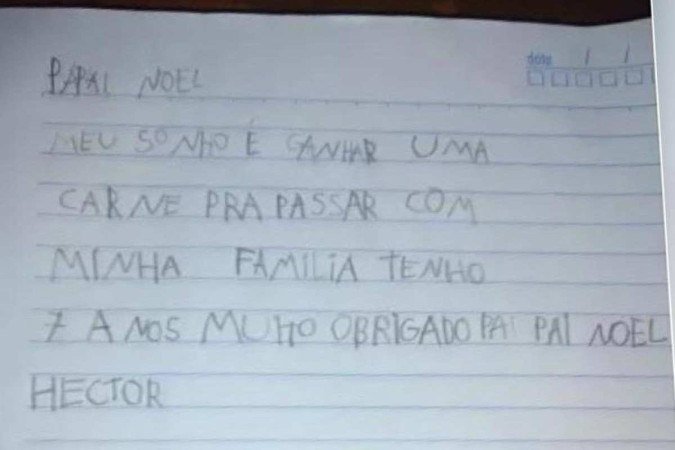 data / /
PAPAI NOEL
MEU SONHO É GANHAR UMA
CARNE PRA PASSAR COM
MINHA FAMILIA TENHO
7 ANOS MUITO OBRIGADO PAI PAI NOEL
HECTOR